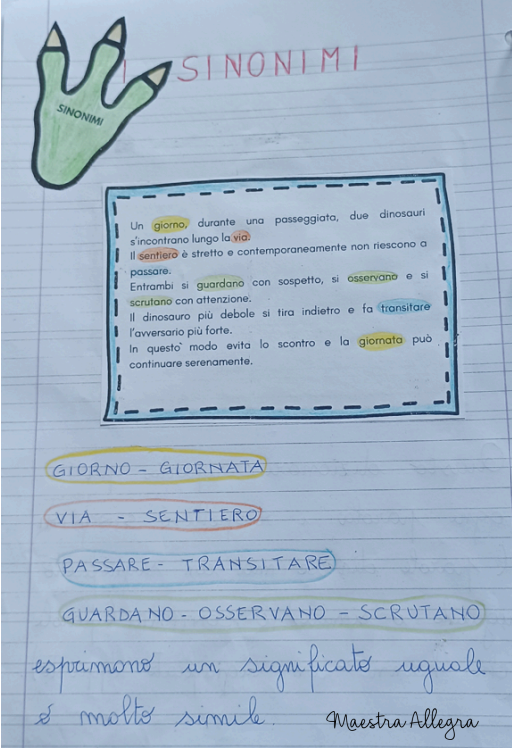 I SINONIMI
SINONIMI
Un giorno, durante una passeggiata, due dinosauri
s'incontrano lungo la via.
Il sentiero è stretto e contemporaneamente non riescono a
passare.
Entrambi si guardano con sospetto, si osservano e si
scrutano con attenzione.
Il dinosauro più debole si tira indietro e fa transitare
l'avversario più forte.
In questo modo evita lo scontro e la giornata può
continuare serenamente.
GIORNO - GIORNATA
VIA - SENTIERO
PASSARE - TRANSITARE
GUARDANO - OSSERVANO - SCRUTANO
esprimono un significato uguale
o molto simile.
Maestra Allegra